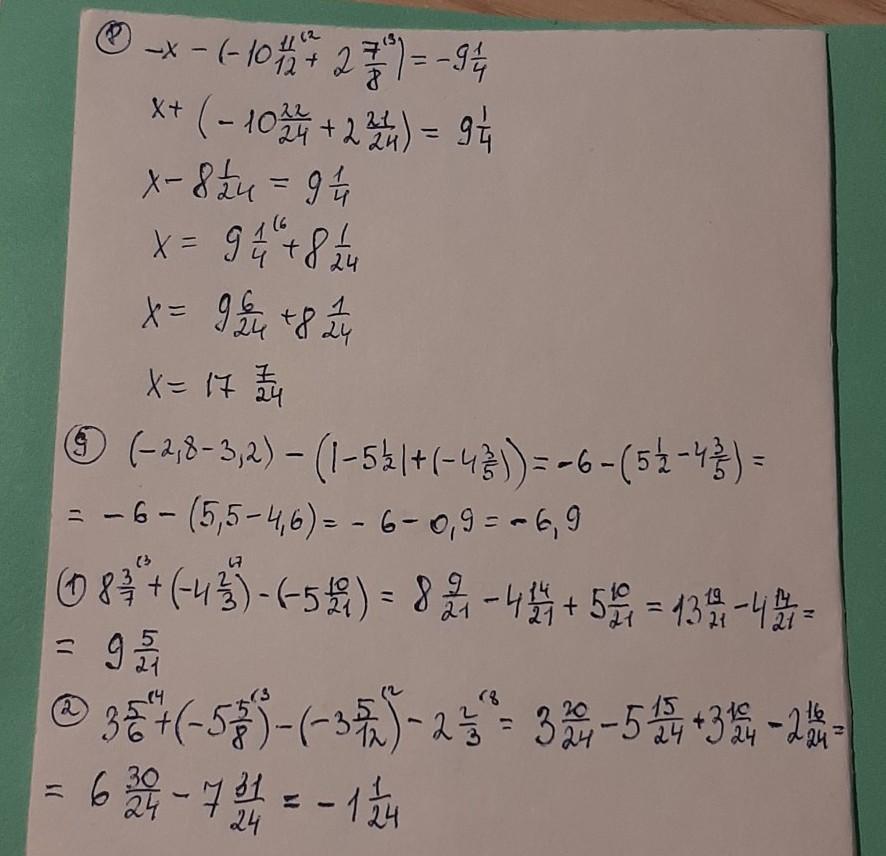 ⑧ -x - (-10 11/12 (2 + 2 7/8 (3) = -9 1/4
x + (-10 22/24 + 2 21/24) = 9 1/4
x - 8 1/24 = 9 1/4
x = 9 1/4 (6 + 8 1/24
x = 9 6/24 + 8 1/24
x = 17 7/24
⑨ (-2,8-3,2) - (|-5 1/2|+(-4 3/5)) = -6 - (5 1/2 - 4 3/5) =
= -6 - (5,5-4,6) = -6-0,9 = -6,9
① 8 3/7 (3 + (-4 2/3 (7) - (-5 10/21) = 8 9/21 - 4 14/21 + 5 10/21 = 13 19/21 - 4 14/21 =
= 9 5/21
② 3 5/6 (4 + (-5 5/8 (3) - (-3 5/12 (2) - 2 2/3 (8 = 3 20/24 - 5 15/24 + 3 10/24 - 2 16/24 =
= 6 30/24 - 7 31/24 = -1 1/24